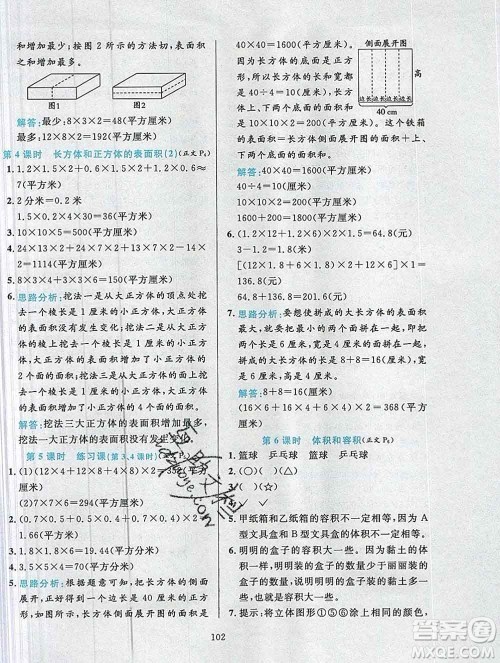 和增加最少；按图2所示的方法切，表面积
之和增加最多。
图1 图2
解答：最少：8×3×2=48(平方厘米)
最多：12×8×2=192(平方厘米)
第4课时 长方体和正方体的表面积(2)(正文P₆)
1. 1.2×1.5×2+0.6×1.5×2+1.2×0.6≈
6(平方米)
2. 2分米=0.2米
1.5×0.2×4×30=36(平方米)
3. 10×10×5=500(平方厘米)
4. 24×13×2+24×17×2+13×17×2-24×2=
1114(平方厘米)
5. 8×3×3×3-3×3×6=150(平方厘米)
6. 思路分析：挖法一是从大正方体的顶点处挖
去一个棱长是3厘米的小正方体，大正方体
的表面积没有发生变化；挖法二是从大正方
体的棱上挖去一个棱长是3厘米的小正方
体，大正方体的表面积增加了小正方体2个
面的面积；挖法三是从大正方体的面上挖去
一个棱长是3厘米的小正方体，大正方体的
表面积增加了小正方体4个面的面积。
解答：挖法三大正方体的表面积增加得最多，
挖法一大正方体的表面积没有发生变化。
第5课时 练习课(第3、4课时)(正文
1. (1)(12×4+12×7+4×7)×2=320(平方
(2)7×7×6=294(平方厘米)
2. 0.4×0.3+0.4×0.5×2+0.3×0.5×2=
0.82(平方米)
3. 1.8×1.8×4=12.96(平方分米)
4. 15×2×4×600=72000(平方厘米)
5. 思路分析：根据题意可知，把长方体的侧面
展开后，得到一个边长为40厘米的正方形，
这个长方体的侧面展开图的面积是
40×40=1600(平方厘米)。
因为长方体的底面是正方
形，所以长方体的长和宽都
是40÷4=10(厘米)，底面积
是10×10=100(平方厘米)。
因为是做一个长方体的铁
箱，所以要算表面积，这个铁箱
的表面积是侧面展开图的面积加上
下两个底面的面积。
侧面展开图
高
边长边长边长边长
40 cm
解答：40×40=1600(平方厘米)
40÷4=10(厘米)
10×10×2=200(平方厘米)
1600+200=1800(平方厘米)
6. (1.2×12+1.2×6)×3=64.8(元)
3-1.2=1.8(米)
[12×6+(12×1.8+6×1.8)×2-(12×6)]×
1=136.8(元)
64.8<136.8
7. 思路分析：要想使拼成的大长方体表面积
最大，就要把两个小长方体最小的面拼在一
起，即把两个6×2的面拼在一起，此时，拼
成的大长方体的长是8+8=16(厘米)，宽是
6厘米，高是2厘米。
解答：8+8=16(厘米)
(16×6+16×2+6×2)×2=280(平方
厘米)
第6课时 体积和容积(正文P₈)
1. 篮球 乒乓球 篮球 乒乓球
2. (○)( )(△)(☆)
3. ✓
5. 甲纸箱和乙纸箱的体积不一定相等，因为A
型文具盒和B型文具盒的体积不一定相等。
6. 明明的盒子的容积大一些。
因为明明的盒子的数量少于丽丽装的
数量，盒子的数量越少，每个盒子的
容积就越大，所以明明的盒子的容积大。
7. 提示：将立体图形①⑤⑥涂上颜色。
102